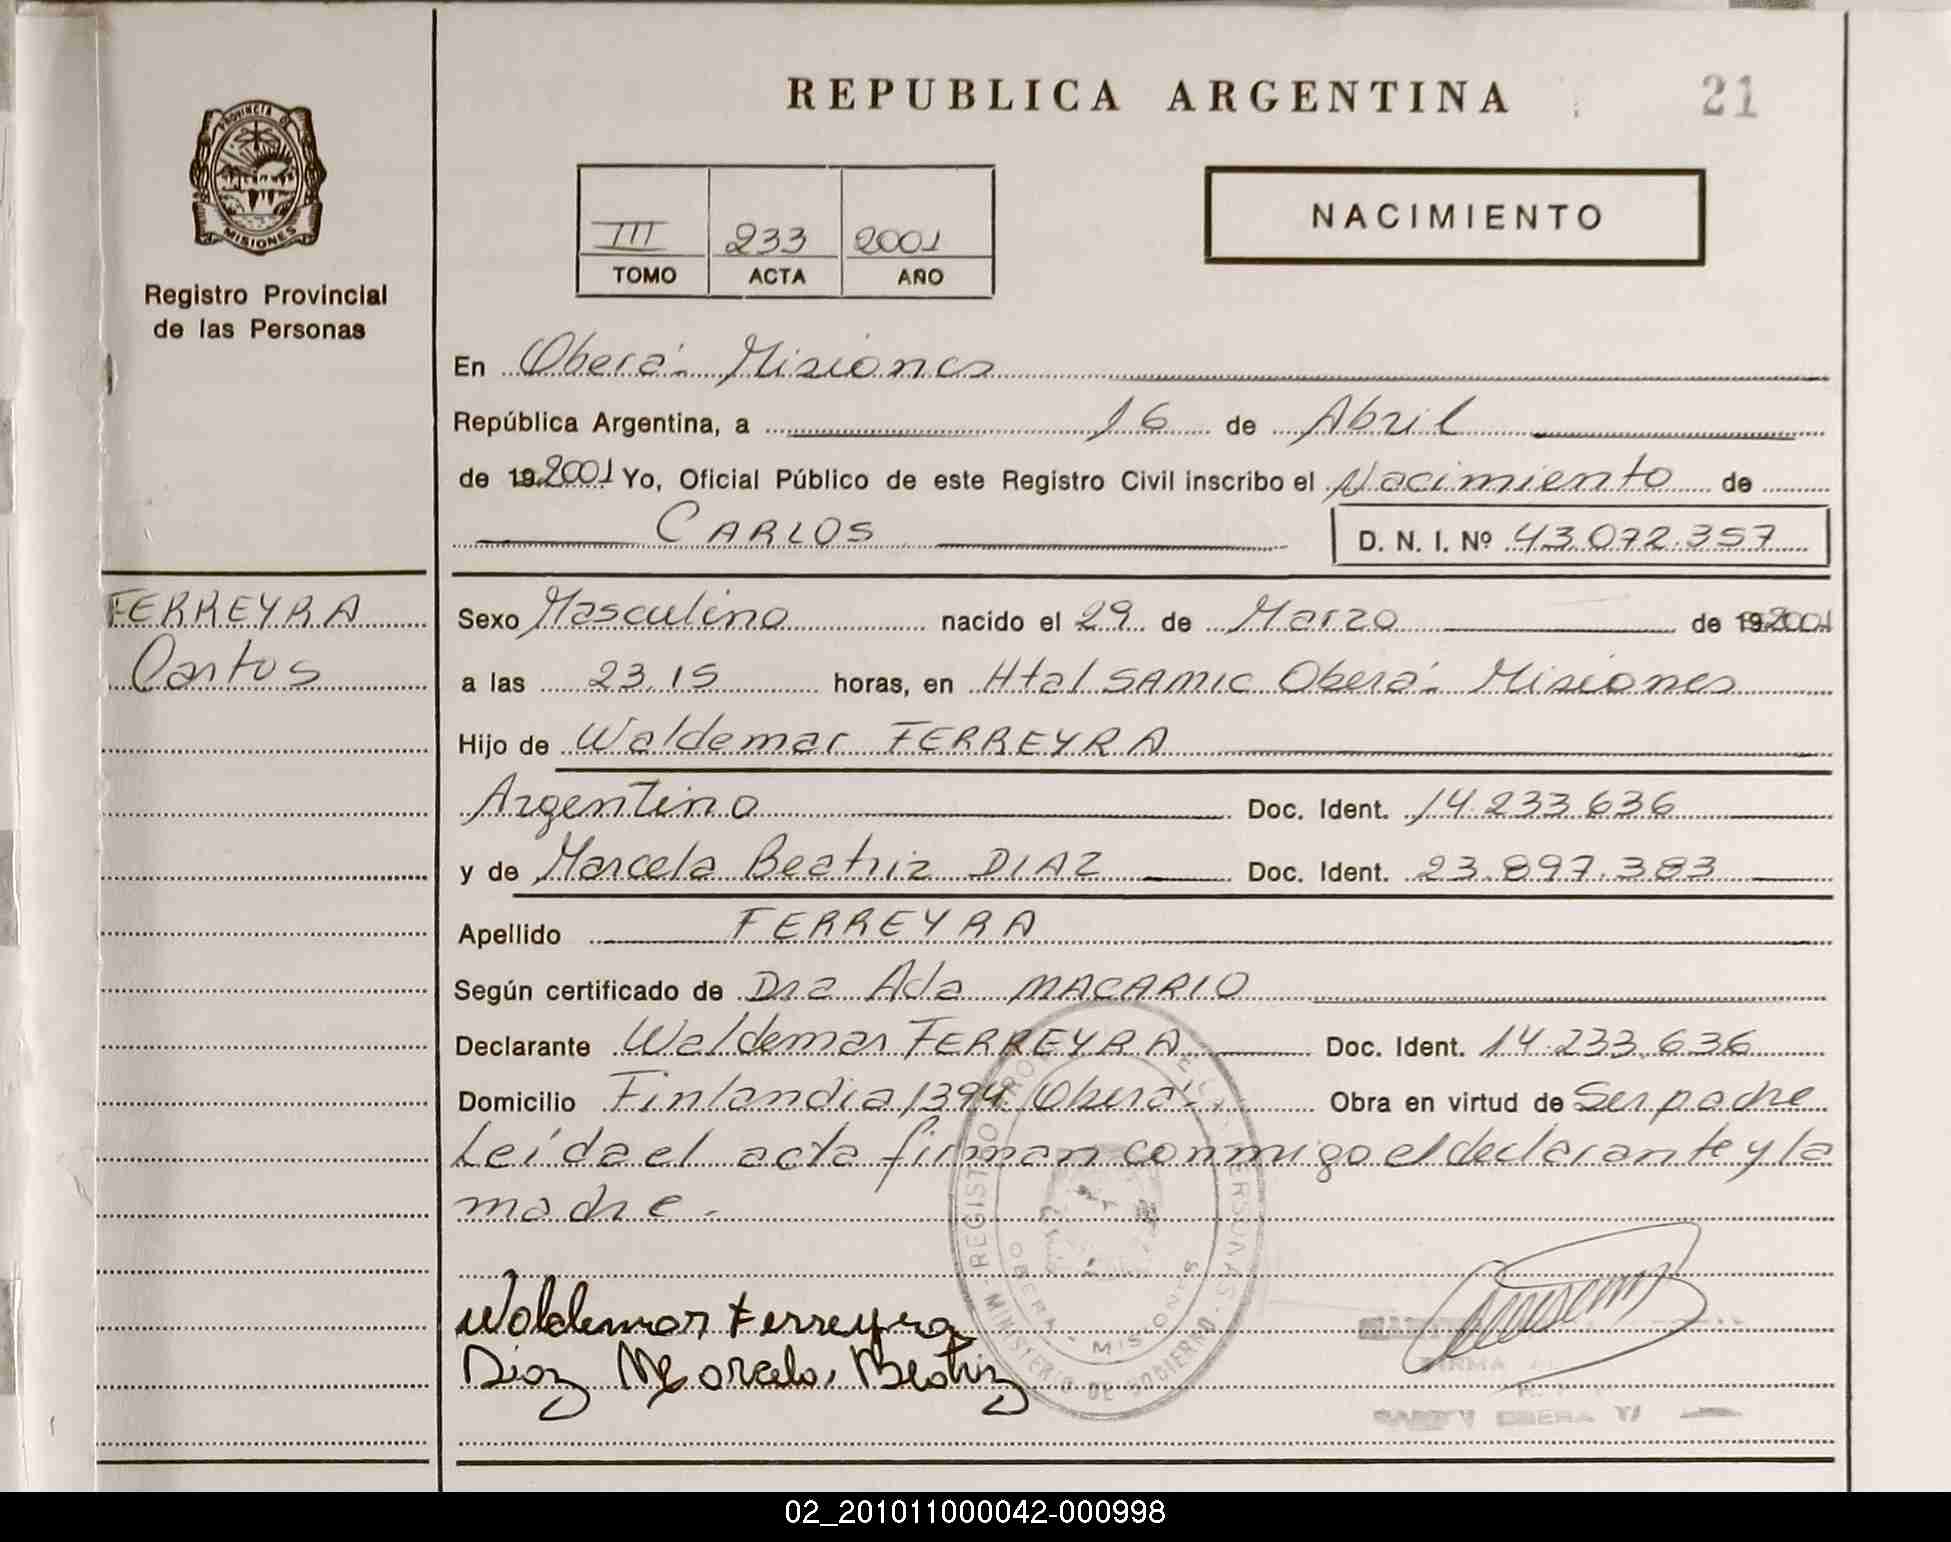 REPUBLICA ARGENTINA
21
PROVINCIA DE
MISIONES
Registro Provincial
de las Personas
III 233 2001
TOMO ACTA AÑO
NACIMIENTO
En Oberá - Misiones
República Argentina, a 16 de Abril
de 19 2001 Yo, Oficial Público de este Registro Civil inscribo el Nacimiento de
CARLOS D. N. I. Nº 43.072.357
FERREYRA
Carlos
Sexo Masculino nacido el 29 de Marzo de 19 2001
a las 23.15 horas, en Htal SAMIC Oberá - Misiones
Hijo de Waldemar FERREYRA
Argentino Doc. Ident. 14.233.636
y de Marcela Beatriz DIAZ Doc. Ident. 23.897.383
Apellido FERREYRA
Según certificado de Dra Ada MACARIO
Declarante Waldemar FERREYRA Doc. Ident. 14.233.636
Domicilio Finlandia 1394 Oberá - Obra en virtud de Ser padre
Leída el acta firman conmigo el declarante y la
madre.
Waldemar Ferreyra
Diaz Marcela Beatriz
OBERA - MISIONES
MINISTERIO DE GOBIERNO
02_201011000042-000998